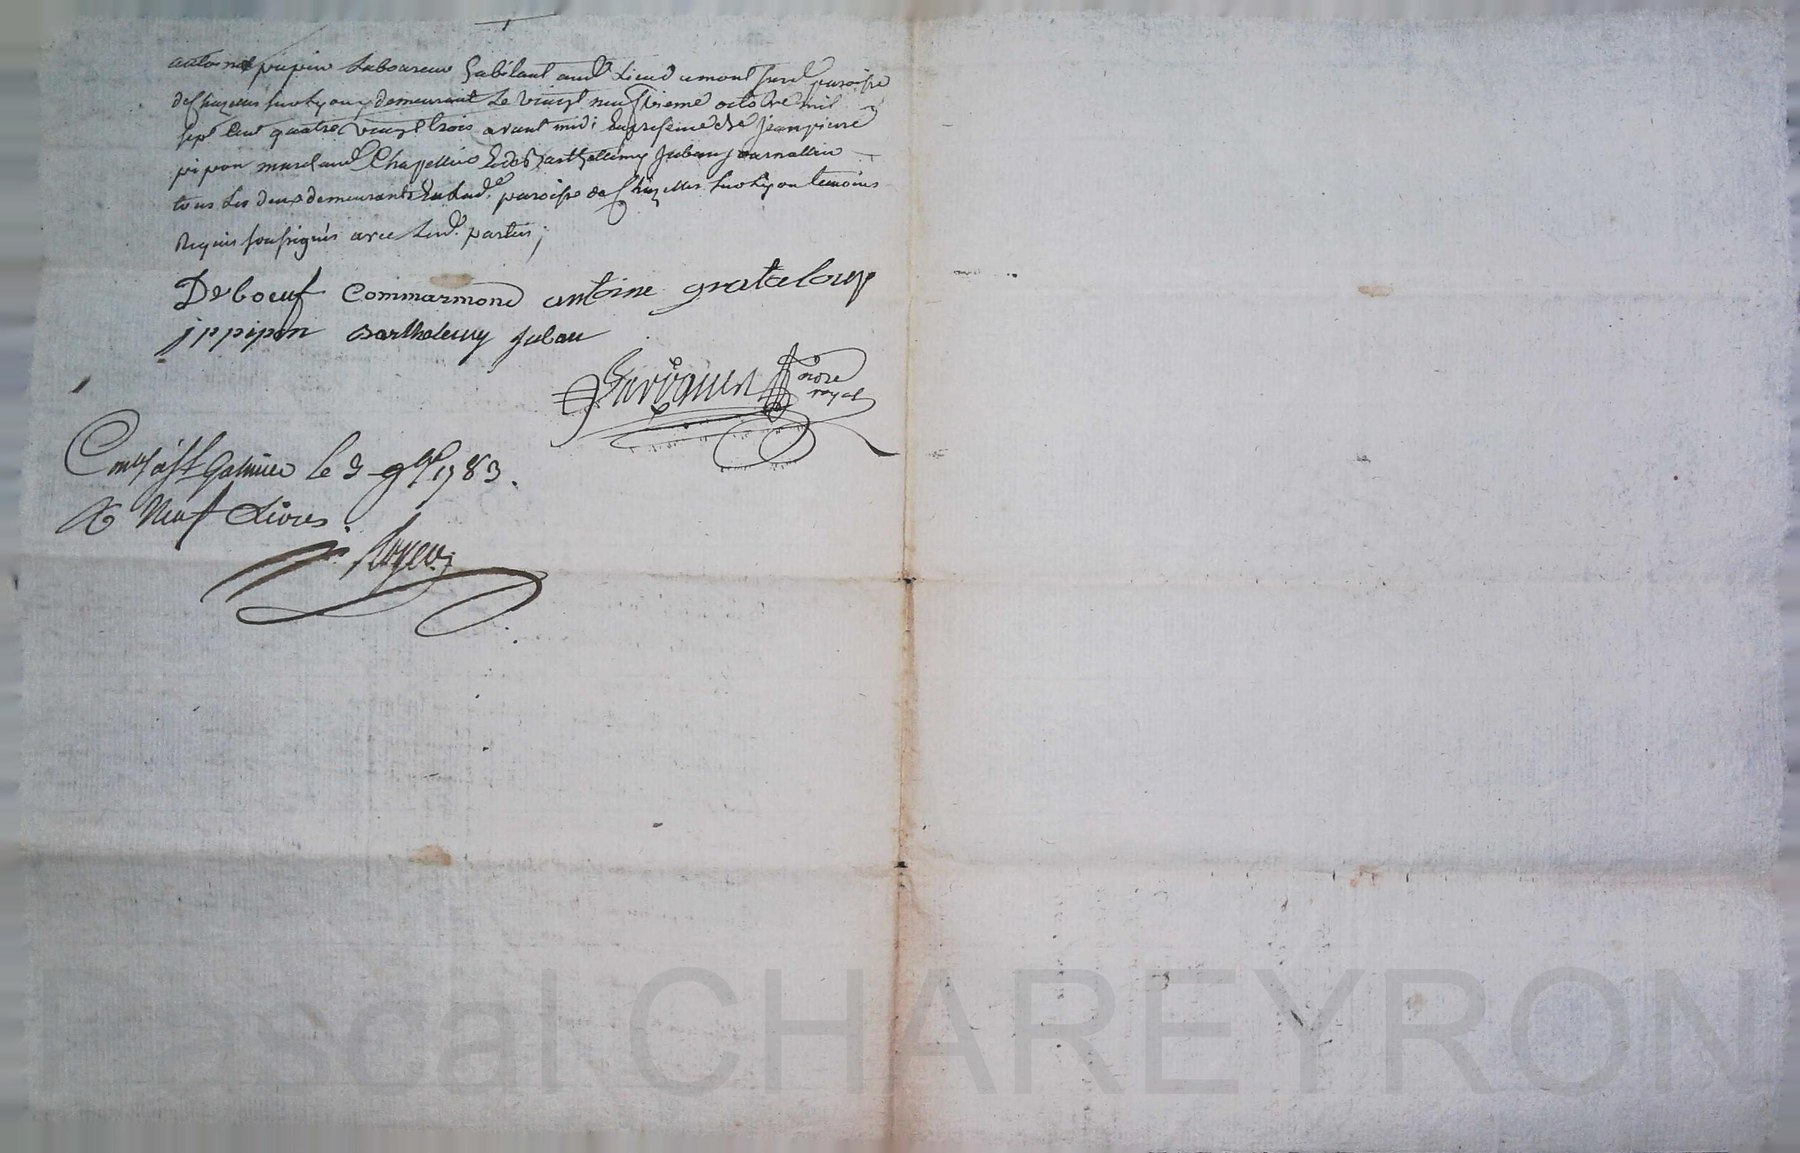 antoine pupier Laboureur habitant aud. Lieu d amont susd. paroisse
de Chazelles sur Lyon y demeurant Le vingt neufvieme octobre mil
sept Cent quatre vingt trois avant midi En presence de Jean pierre
pipon marchand Chapellier Et de Barthellémy Juban Journallier
tous Les deux demeurants En Lad. paroisse de Chazelles sur Lyon temoins
Requis soussignés avec Lesd. parties;
Deboeuf Commarmond antoine grataloup
jp pipon Barthelemy Juban
nore
royal
St Galmier le 9bre 1783.
R Neuf Livres.
Royer
Pascal CHAREYRON